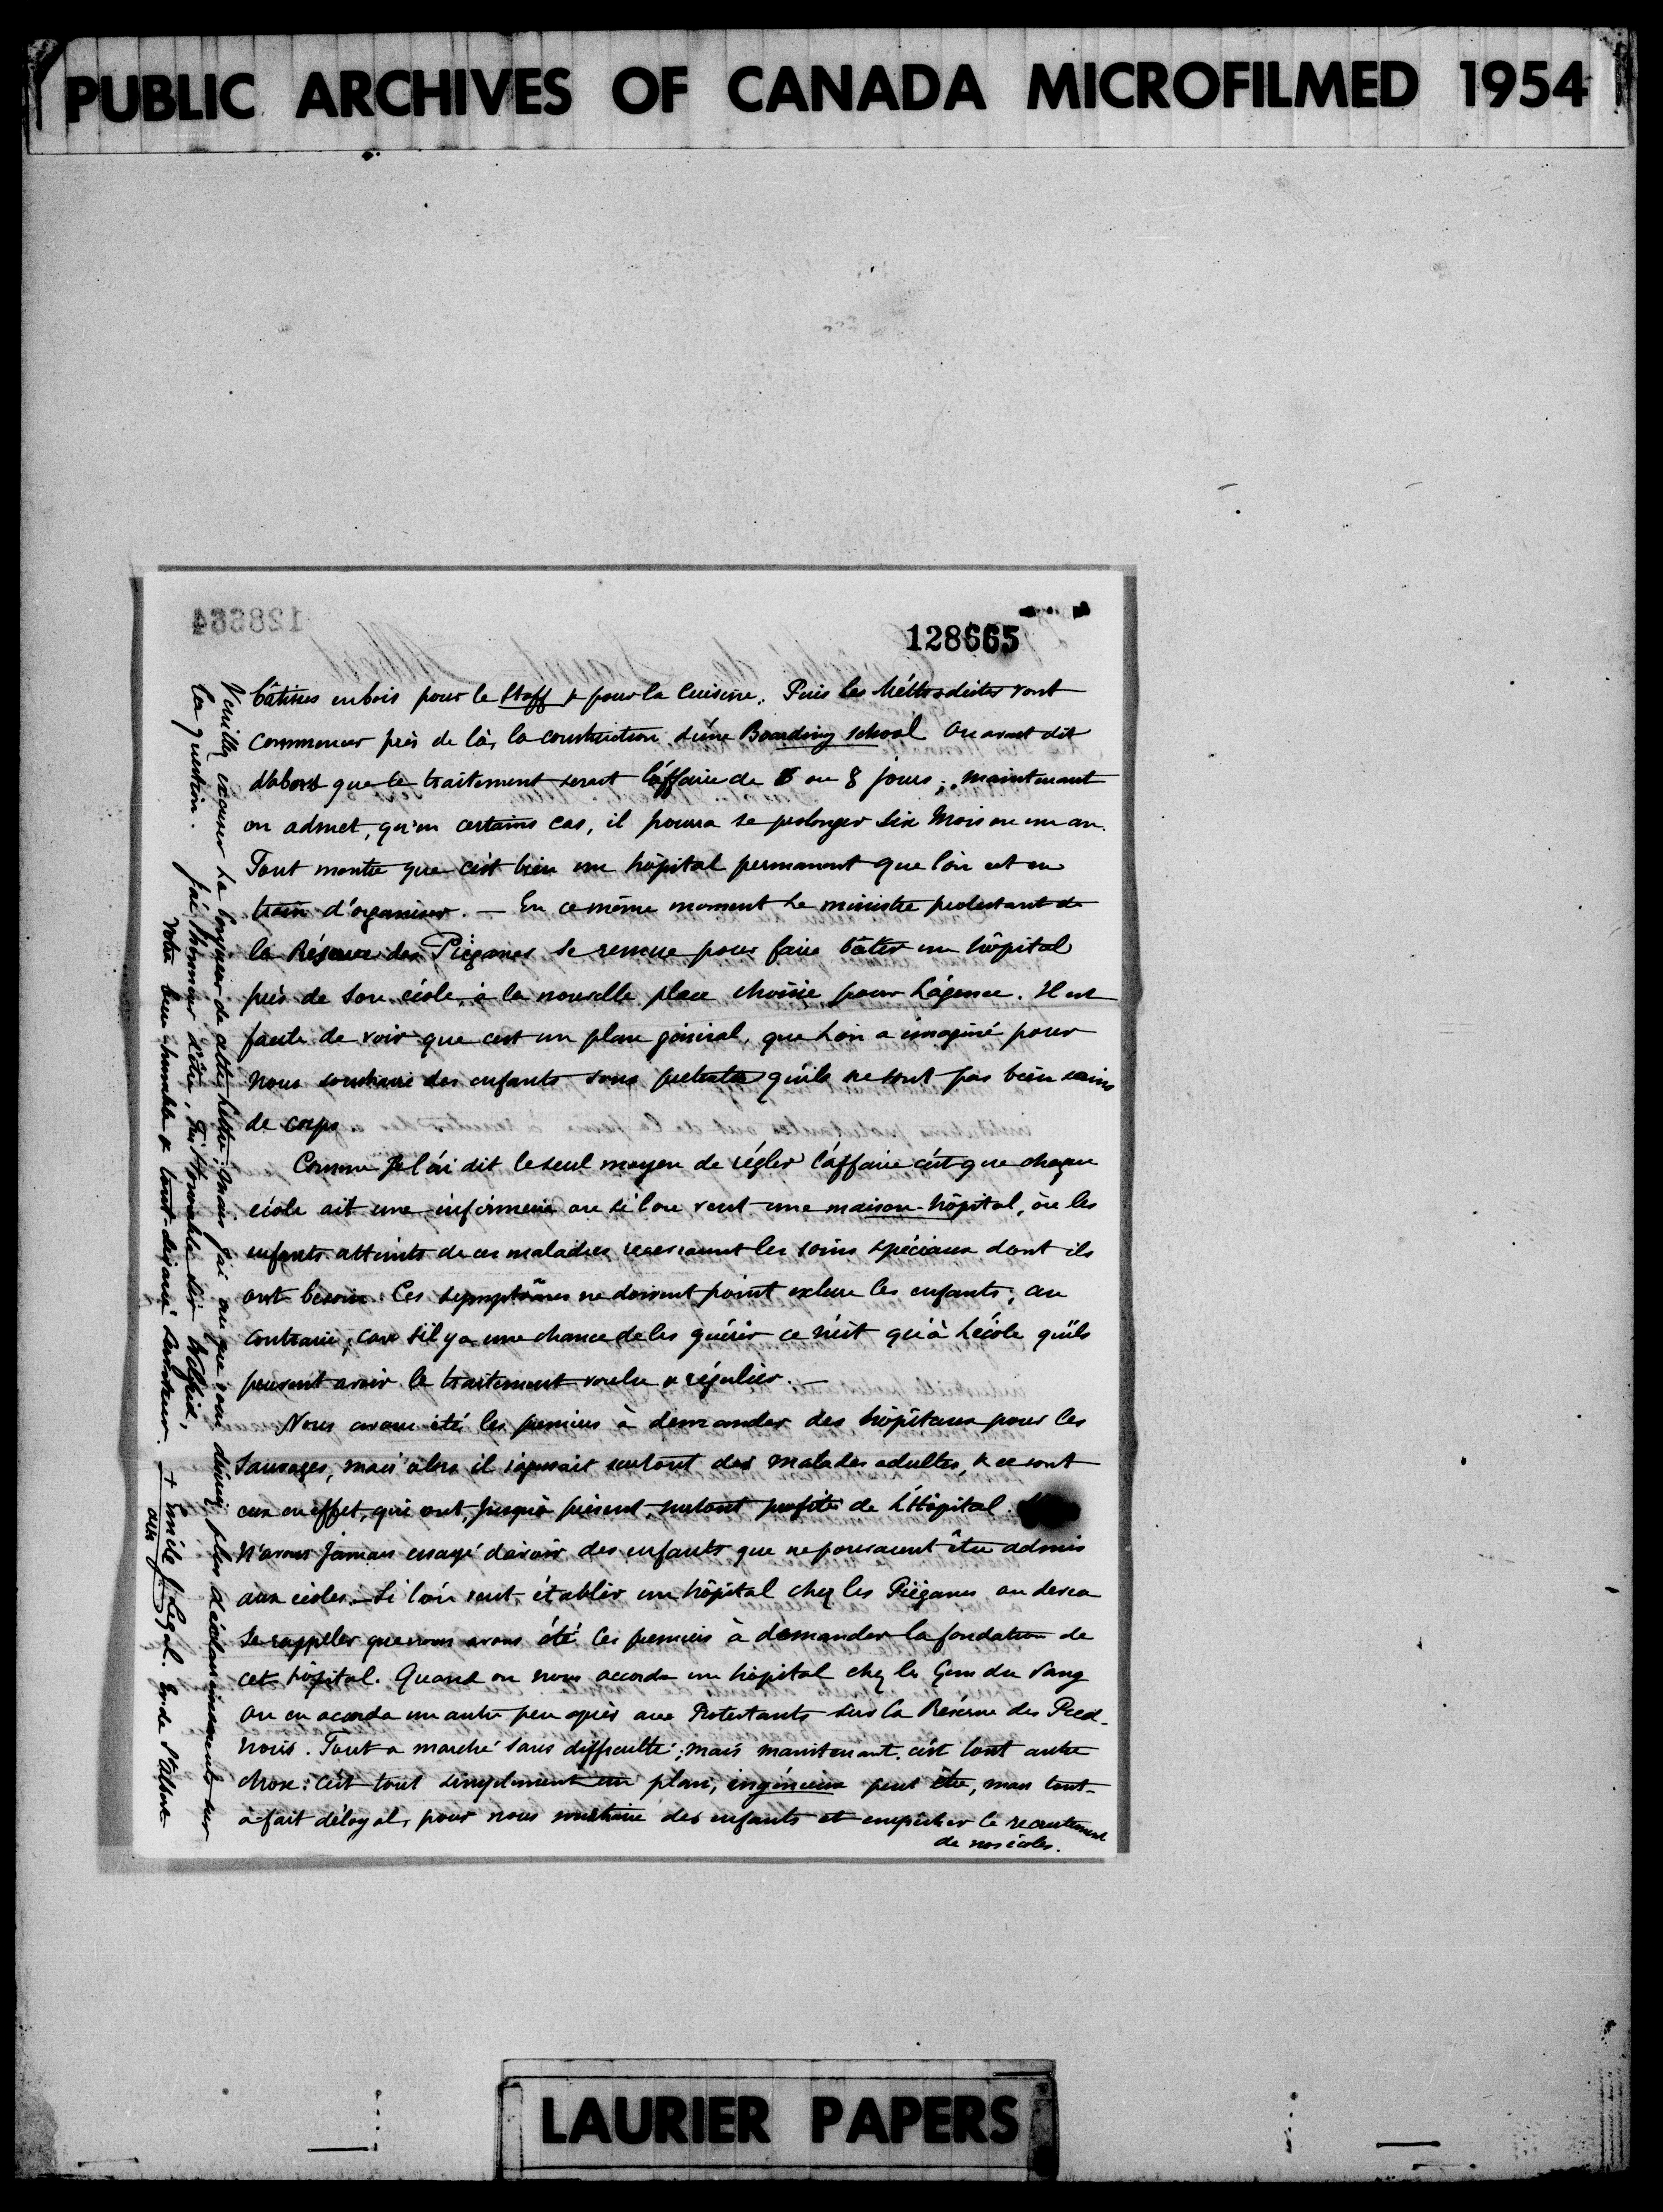 PUBLIC ARCHIVES OF CANADA MICROFILMED 1954
128664
128665
bâtisses en bois pour le Staff & pour la Cuisine. Puis les Méthodistes vont
commencer près de là, la construction d'une Boarding school. On avait dit
d'abord que le traitement serait l'affaire de 6 ou 8 jours; maintenant
on admet, qu'en certains cas, il pourra se prolonger six Mois ou un an.
Tout montre que c'est bien un hôpital permanent que l'on est en
train d'organiser. — En ce même moment le ministre protestant de
la Réserve des Piéganes se remue pour faire bâtir un hôpital
près de son école, à la nouvelle place choisie pour L'agence. Il est
facile de voir que c'est un plan général, que l'on a imaginé pour
nous soustraire des enfants sous prétexte qu'ils ne sont pas bien sains
de corps.
Comme Je l'ai dit le seul moyen de régler l'affaire c'est que chaque
école ait une infirmerie ou si l'on veut une maison-hôpital, où les
enfants atteints de ces maladies recevraient les soins spéciaux dont ils
ont besoin. Ces symptômes ne doivent point exclure les enfants; au
contraire, car s'il y a une chance de les guérir ce n'est qu'à L'école qu'ils
peuvent avoir le traitement voulu & régulier. —
Nous avons été les premiers à demander des hôpitaux pour les
Sauvages, mais alors il s'agissait surtout des malades adultes, & ce sont
eux en effet, qui ont, jusqu'à présent, surtout profité de L'Hôpital.
N'avons jamais essayé d'avoir des enfants que ne pouvaient être admis
aux écoles. — Si l'on veut établir un hôpital chez les Piéganes on devra
se rappeler que nous avons été les premiers à demander la fondation de
cet hôpital. Quand on nous accorda un hôpital chez les Gens du Sang
on en accorda un autre peu après aux Protestants sur la Réserve des Pied-
noirs. Tout a marché sans difficulté; mais maintenant, c'est tout autre
chose: c'est tout simplement un plan, ingénieux peut être, mais tout-
à-fait déloyal, pour nous soustraire des enfants et empêcher le recrutement
de nos écoles.
Veuillez excuser la longueur de cette Lettre; mais j'ai cru que vous désiriez plus d'éclaircissements sur
la question. J'ai l'honneur d'être, Très Honorable Sir Wilfrid,
Votre bien humble & tout-dévoué Serviteur. + Emile J. Legal. Ev. de St Albert
OMI
LAURIER PAPERS